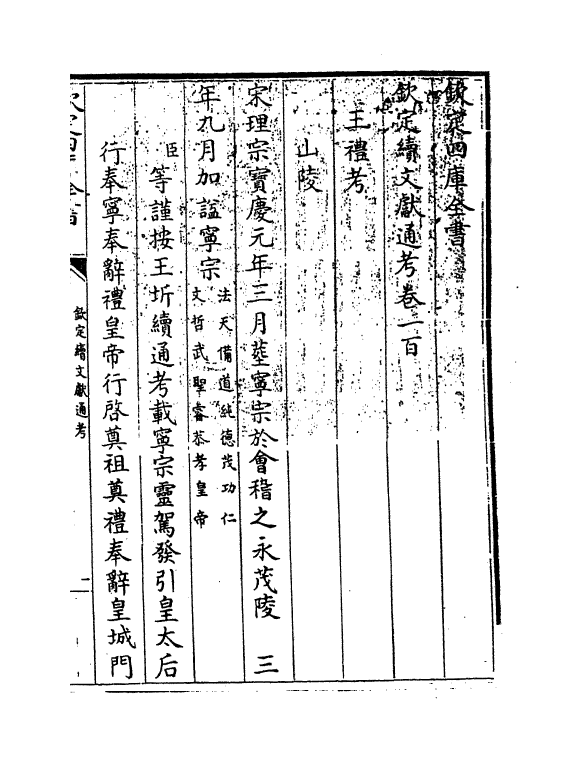 欽定四庫全書
欽定續文獻通考卷一百
王禮考
山陵
宋理宗寶慶元年三月塟寧宗於會稽之永茂陵　三
年九月加諡寧宗法天備道純德茂功仁
文哲武聖睿恭孝皇帝
臣等謹按王圻續通考載寧宗靈駕發引皇太后
行奉寧奉辭禮皇帝行啓奠祖奠禮奉辭皇城門
欽定四庫全書
欽定續文獻通考